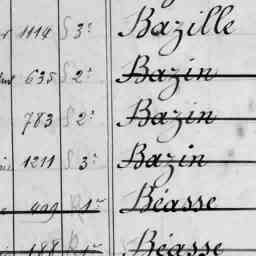 1114 S 3e Bazille
635 S 2e Bazin
783 S 2e Bazin
1211 S 3e Bazin
499 R 1re Béasse
188 R 1re Béasse